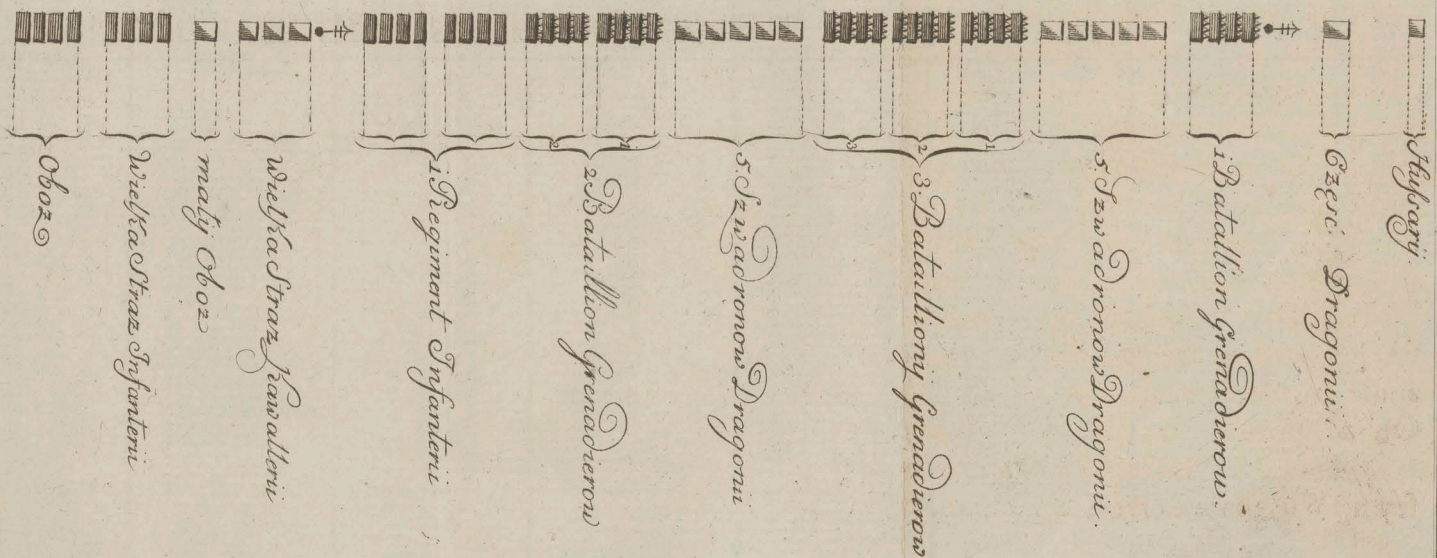 Hussarÿ
Częsć Dragonii.
1 Batallion Grenadierow
5. Szwadronow Dragonii.
1
2
3
3 Bataillionÿ Grenadierow
5. Szwadronow Dragonii
1
2
2 Bataillion Grenadierow
1. Regiment Infanterii
Wielka Straz Kawallerii
małÿ Oboz
Wielka Straz Infanterii
Oboz